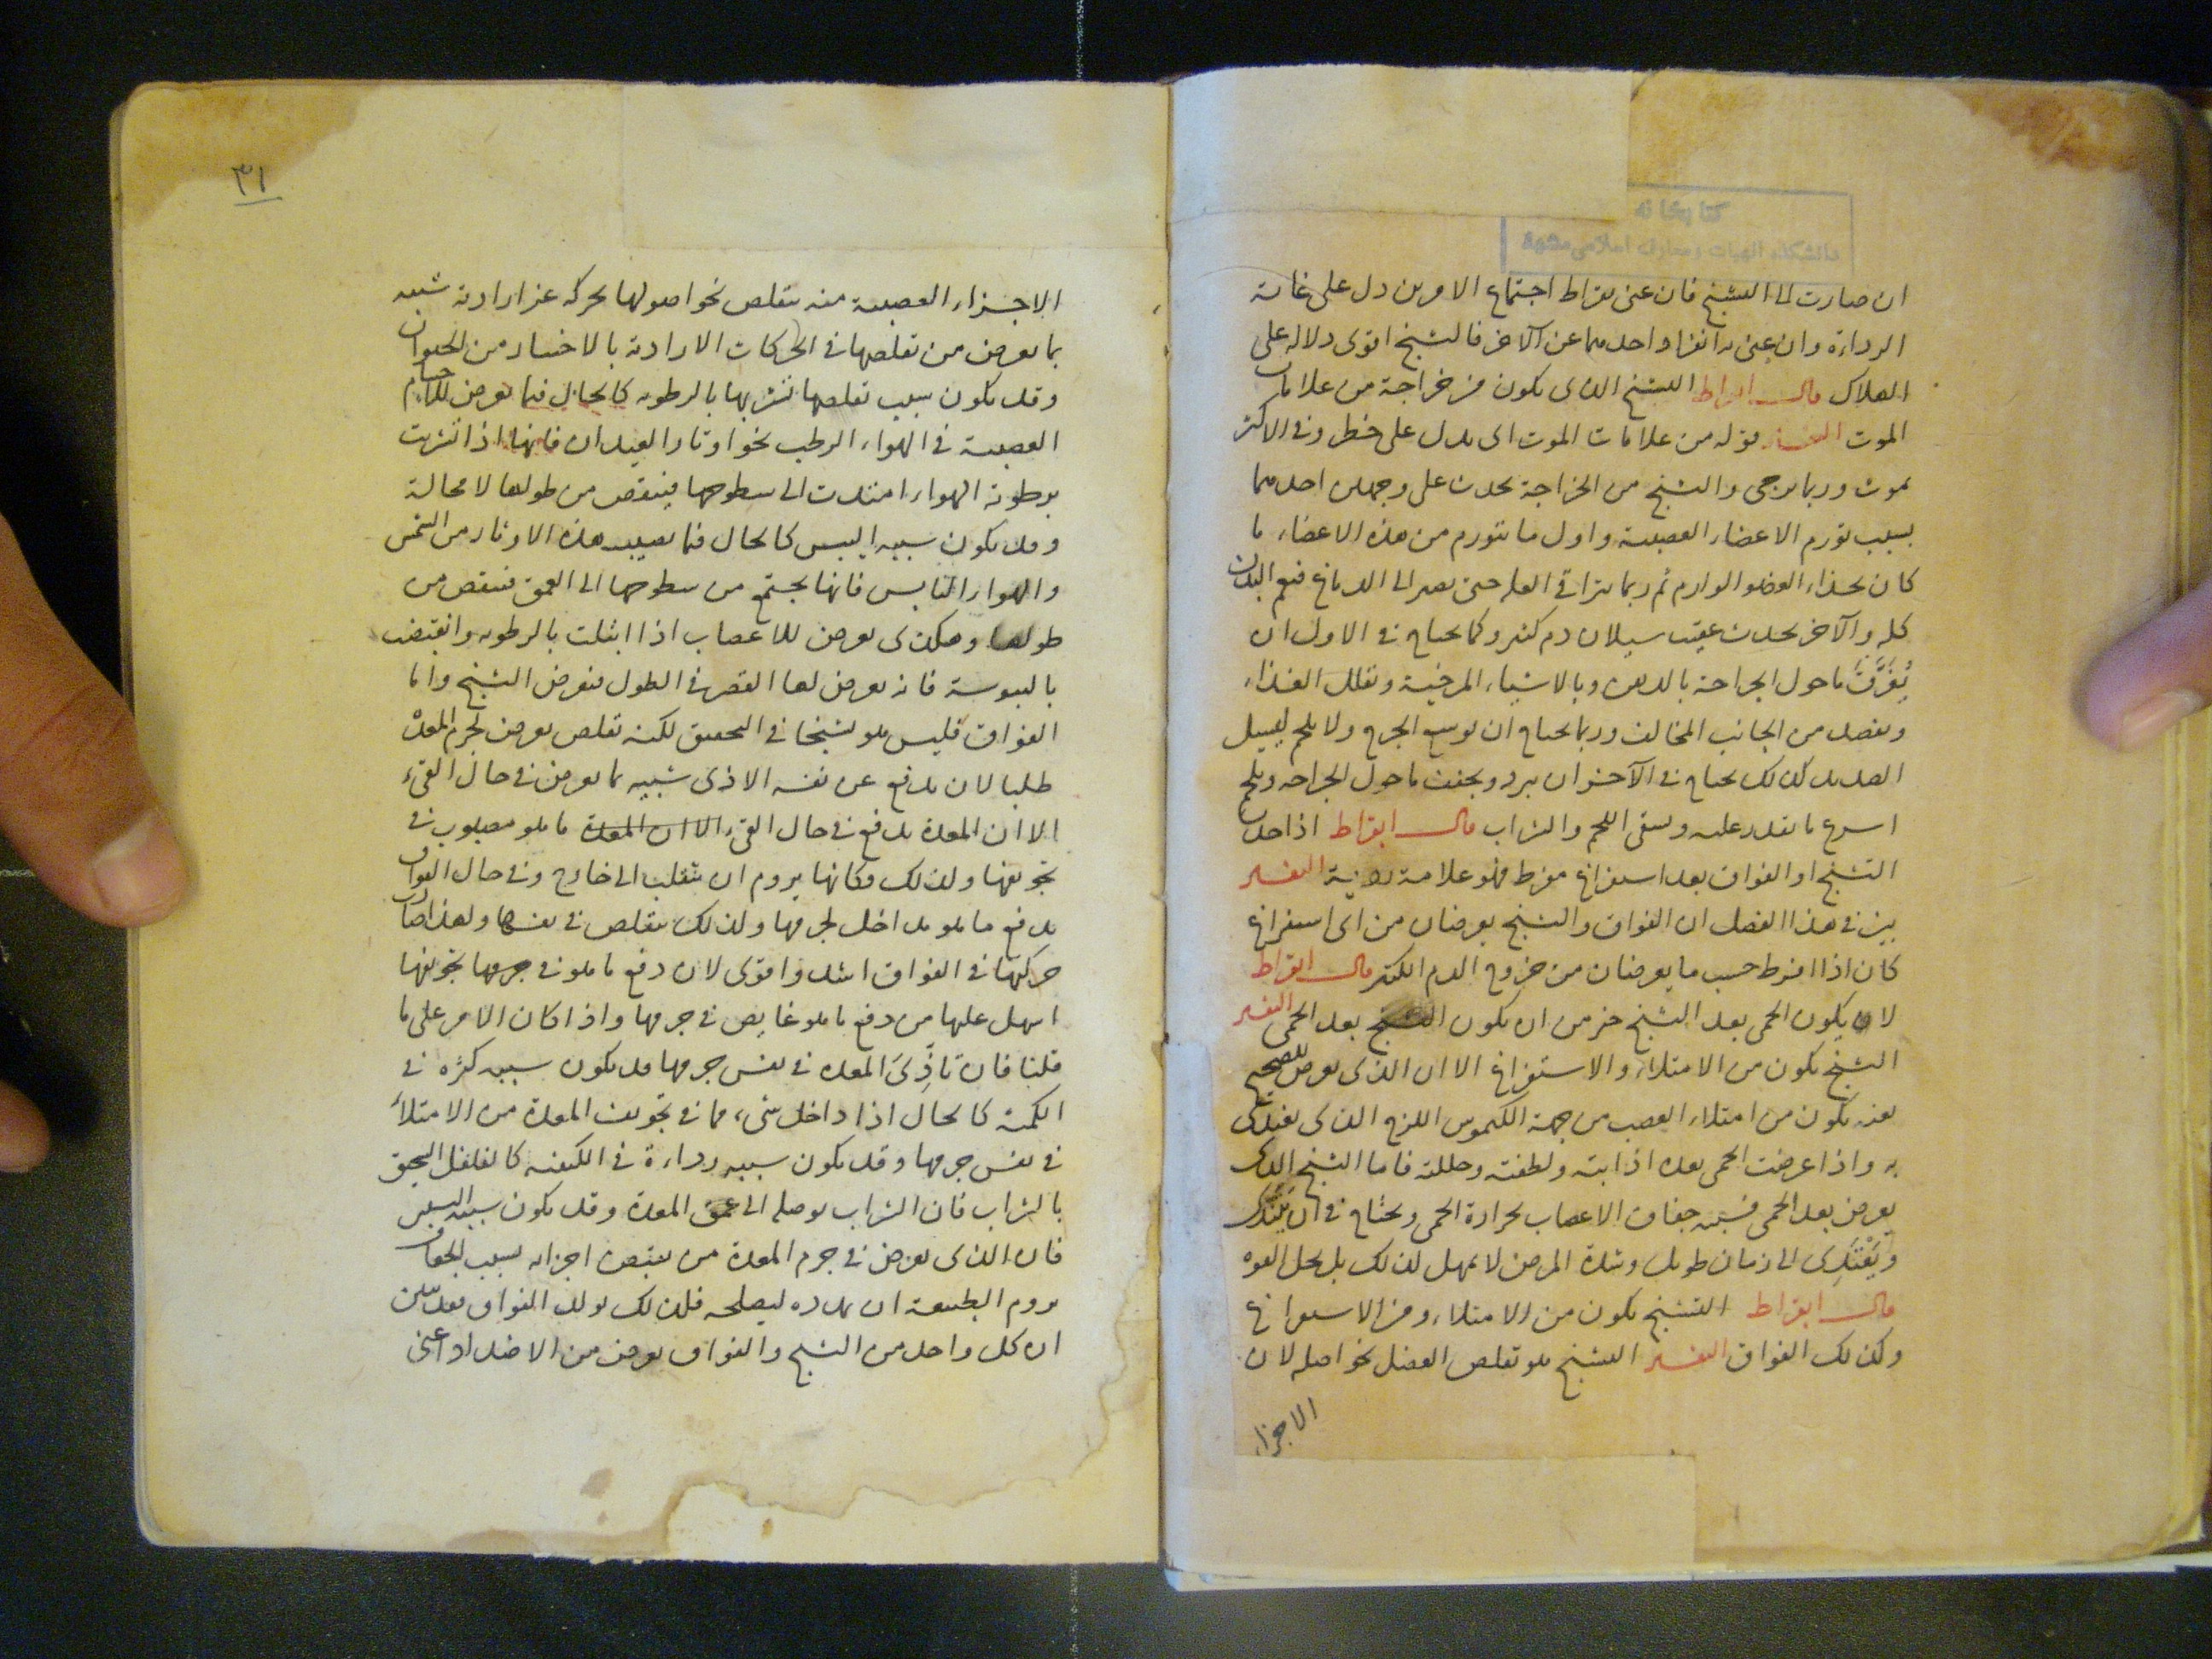 ان صارت الى التشنج فان عنى بقراط اجتماع الامرين دل على غاية
الرداءة وان عنى به انفراد احدهما عن الآخر فالتشنج اقوى دلالة على
الهلاك قال ابقراط التشنج الذى يكون من خراجة من علامات
الموت التفسير قوله من علامات الموت اى يدل على خطر وفى الاكثر
يموت وربما يرجى والتشنج من الخراجة يحدث على وجهين احدهما
بسبب تورم الاعضاء العصبية واول ما يتورم من هذه الاعضاء ما
كان بحذاء العضو الوارم ثم ربما تراقى العلة حتى تصير الى الدماغ فيعم البدن
كله والآخر يحدث عقيب سيلان دم كثير وكما يحتاج فى الاول ان
يُغرَّق ما حول الجراحة بالدهن وبالاشياء المرخية ويقلل الغذاء
ويفصد من الجانب المخالف وربما يحتاج ان يوسع الجرح ولا يلحم ليسيل
الصديد كذلك يحتاج فى الآخر ان يبرد ويجفف ما حول الجراحة ويلحم
اسرع ما يقدر عليه ويسقى اللحم والشراب قال ابقراط اذا حدث
التشنج او الفواق بعد استفراغ مفرط فهو علامة ردية التفسير
بين فى هذا الفصل ان الفواق والتشنج يعرضان من اى استفراغ
كان اذا افرط حسب ما يعرضان من خروج الدم الكثير قال ابقراط
لان يكون الحمى بعد التشنج خير من ان يكون التشنج بعد الحمى التفسير
التشنج يكون من الامتلاء والاستفراغ الا ان الذى يعرض للصحيح
بغتة يكون من امتلاء العصب من جهة الكيموس اللزج الذى يغتذى
به واذا عرضت الحمى بعده اذابته ولطفته وحللته فاما التشنج الذى
يعرض بعد الحمى فسببه جفاف الاعصاب بحرارة الحمى ويحتاج فى ان يَبْتَدى
ويَغْتَذِى الى زمان طويل وشدة المرض لا تمهل لذلك بل يحل القوة
قال ابقراط التشنج يكون من الامتلاء ومن الاستفراغ
وكذلك الفواق التفسير التشنج هو تقلص العضل نحو اصله لان
الاجزاء
٣١
الاجزاء العصبية منه يتقلص نحو اصولها بحركة غير ارادية شبيه
بما يعرض من تقلصها فى الحركات الارادية بالاختيار من الحيوان
وقد يكون سبب تقلصها تشربها بالرطوبة كالحال فيما يعرض للاجسام
العصبية فى الهواء الرطب نحو اوتار العيدان فانها اذا تشربت
برطوبة الهواء امتدت الى سطوحها فينقص من طولها لا محالة
وقد يكون سببه اليبس كالحال فيما يصيب هذه الاوتار من الشمس
والهواء اليابس فانها يجتمع من سطوحها الى العمق فينقص من
طولها وهكذى يعرض للاعصاب اذا ابتلت بالرطوبة وانقبضت
باليبوسة فانه يعرض لها القصر فى الطول فيعرض التشنج واما
الفواق فليس هو تشنجا فى التحقيق لكنه تقلص يعرض لجرم المعدة
طلبا لان يدفع عن نفسه الاذى شبيه بما يعرض فى حال القىء
الا ان المعدة يدفع فى حال القىء الا ان المعدة ما هو مصبوب فى
تجويفها ولذلك فكانها يروم ان ينقلب الى خارج وفى حال الفواق
يدفع ما هو مداخل لجرمها ولذلك يتقلص فى نفسها ولهذا صارت
حركتها فى الفواق اشد واقوى لان دفع ما هو فى جرمها تجويفها
اسهل عليها من دفع ما هو غايص فى جرمها واذا كان الامر على ما
قلنا فان تاذِّىَ المعدة فى نفس جرمها قد يكون سببه كثرة فى
الكمية كالحال اذا داخل شىء مما فى تجويف المعدة من الامتلاء
فى نفس جرمها وقد يكون سببه رداءة فى الكيفية كالفلفل السحيق
بالشراب فان الشراب يوصله الى عمق المعدة وقد يكون سببه اليبس
فان الذى يعرض فى جرم المعدة من تقبض اجزايه بسبب الجفاف
يروم الطبيعة ان يمدده ليصلحه فلذلك تولد الفواق فقد تبين
ان كل واحد من التشنج والفواق يعرض من الاضداد اعنى